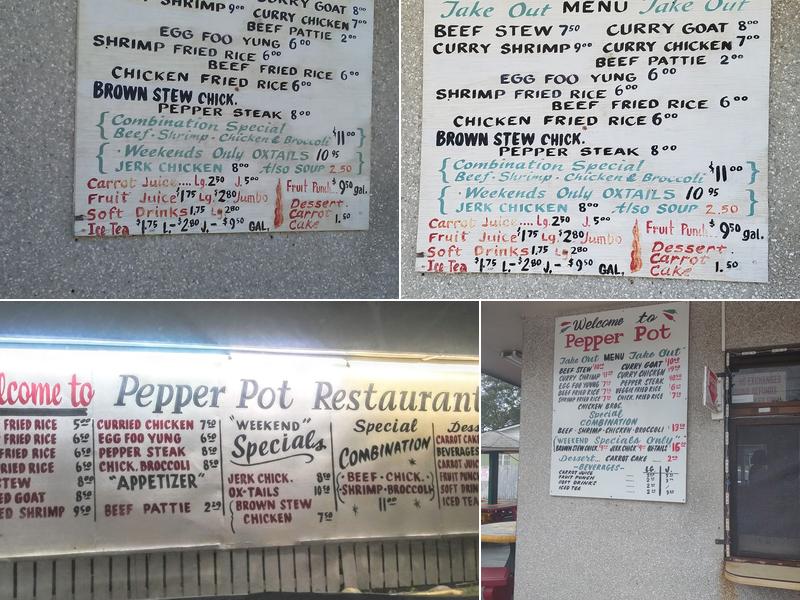 SHRIMP 9⁰⁰
CURRY GOAT 8⁰⁰
CURRY CHICKEN 7⁰⁰
BEEF PATTIE 2⁰⁰
EGG FOO YUNG 6⁰⁰
SHRIMP FRIED RICE 6⁰⁰
BEEF FRIED RICE 6⁰⁰
CHICKEN FRIED RICE 6⁰⁰
BROWN STEW CHICK.
PEPPER STEAK 8⁰⁰
Combination Special
Beef-Shrimp-Chicken & Broccoli $11⁰⁰
·Weekends Only OXTAILS 10 95
JERK CHICKEN 8⁰⁰ Also SOUP 2.50
Carrot Juice.... Lg. 2⁵⁰ J. 5⁰⁰
Fruit Juice $1⁷⁵ Lg. $2⁸⁰ Jumbo
Soft Drinks 1.75 Lg 2⁸⁰
Ice Tea $1.⁷⁵ L.-$2⁸⁰ J.-$9⁵⁰ GAL,
Fruit Punc. $9⁵⁰ gal.
Dessert.
Carrot
Cake 1.50
Take Out MENU Take Out
BEEF STEW 7⁵⁰ CURRY GOAT 8⁰⁰
CURRY SHRIMP 9⁰⁰ CURRY CHICKEN 7⁰⁰
BEEF PATTIE 2⁰⁰
EGG FOO YUNG 6⁰⁰
SHRIMP FRIED RICE 6⁰⁰
BEEF FRIED RICE 6⁰⁰
CHICKEN FRIED RICE 6⁰⁰
BROWN STEW CHICK.
PEPPER STEAK 8⁰⁰
Combination Special
Beef-Shrimp-Chicken & Broccoli $11⁰⁰
·Weekends Only OXTAILS 10 95
JERK CHICKEN 8⁰⁰ Also SOUP 2.50
Carrot Juice.... Lg. 2⁵⁰ J. 5⁰⁰
Fruit Juice $1⁷⁵ Lg. $2⁸⁰ Jumbo
Soft Drinks 1.75 Lg 2⁸⁰
Ice Tea $1.⁷⁵ L.-$2⁸⁰ J.-$9⁵⁰ GAL,
Fruit Punc. $9⁵⁰ gal.
Dessert.
Carrot
Cake 1.50
lcome to Pepper Pot Restaurant
FRIED RICE 5⁵⁰
FRIED RICE 6⁵⁰
FRIED RICE 6⁵⁰
RIED RICE 6⁵⁰
STEW 8⁵⁰
ED GOAT 8⁵⁰
ED SHRIMP 9⁵⁰
CURRIED CHICKEN 7⁵⁰
EGG FOO YUNG 6⁵⁰
PEPPER STEAK 8⁵⁰
CHICK. BROCCOLI 8⁵⁰
"APPETIZER"
BEEF PATTIE 2²⁵
"WEEKEND"
Specials
JERK CHICK. 8⁵⁰
OX-TAILS 10⁵⁰
BROWN STEW
CHICKEN 7⁵⁰
Special
COMBINATION
·BEEF·CHICK.
·SHRIMP·BROCCOLI
11⁰⁰
Dess
CARROT CAK
BEVERAGES
CARROT JUIC
FRUIT PUNC
SOFT DRIN
ICED TEA
Welcome to
Pepper Pot
"Take Out MENU Take Out"
BEEF STEW
CURRY GOAT
CURRY SHRIMP
CURRY CHICKEN
EGG FOO YUNG
PEPPER STEAK
BEEF FRIED RICE
VEGGIE FRIED RICE
SHRIMP FRIED RICE
CHICK. FRIED RICE
CHICKEN BROC.
Special
COMBINATION
BEEF-SHRIMP-CHICKEN-BROCCOLI
"WEEKEND Specials Only"
BROWN STEW CHICK. JERK CHICK. OXTAILS
Dessert.. CARROT CAKE
-BEVERAGES- LG J.
CARROT JUICE
FRUIT PUNCH
SOFT DRINKS
ICE TEA
NO EXCHANGES